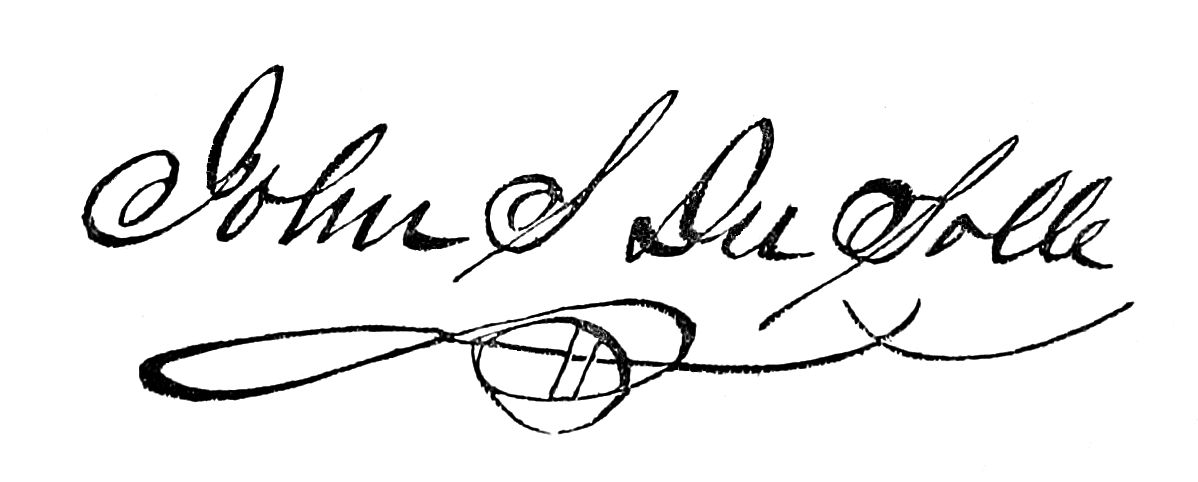 John S Du Solle